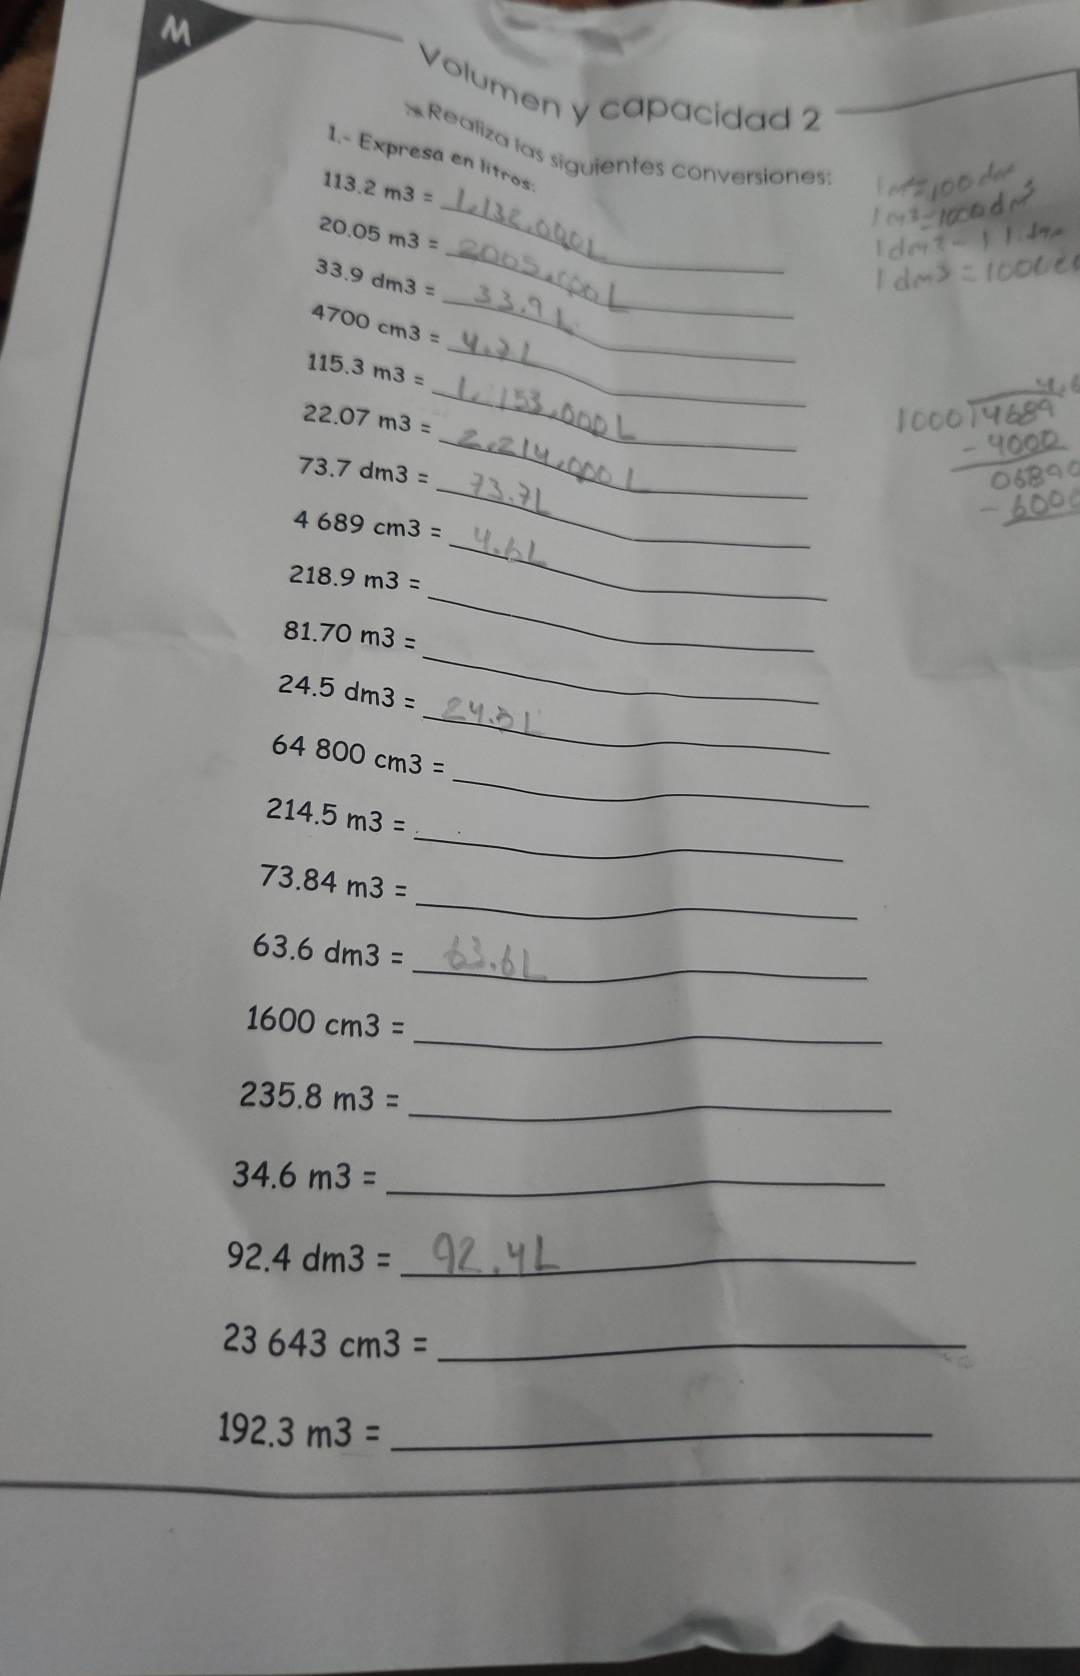 M
Volumen y capacidad 2
Realiza las siguientes conversiones:
1.- Expresa en litros:
113.2 m3 = 1,132,000L
20.05 m3 = 2005,000L
33.9 dm3 = 33.9L
4700 cm3 = 4.7L
115.3 m3 = 1,153,000L
22.07 m3 = 2,214,000L
73.7 dm3 = 73.7L
4 689 cm3 = 4.6L
218.9 m3 =
81.70 m3 =
24.5 dm3 = 24.5L
64 800 cm3 =
214.5 m3 =
73.84 m3 =
63.6 dm3 = 63.6L
1600 cm3 =
235.8 m3 =
34.6 m3 =
92.4 dm3 = 92.4L
23 643 cm3 =
192.3 m3 =
1m3=1000dm3
1dm3 = 1000c
4.6
1000 4689
- 4000
06890
- 6000